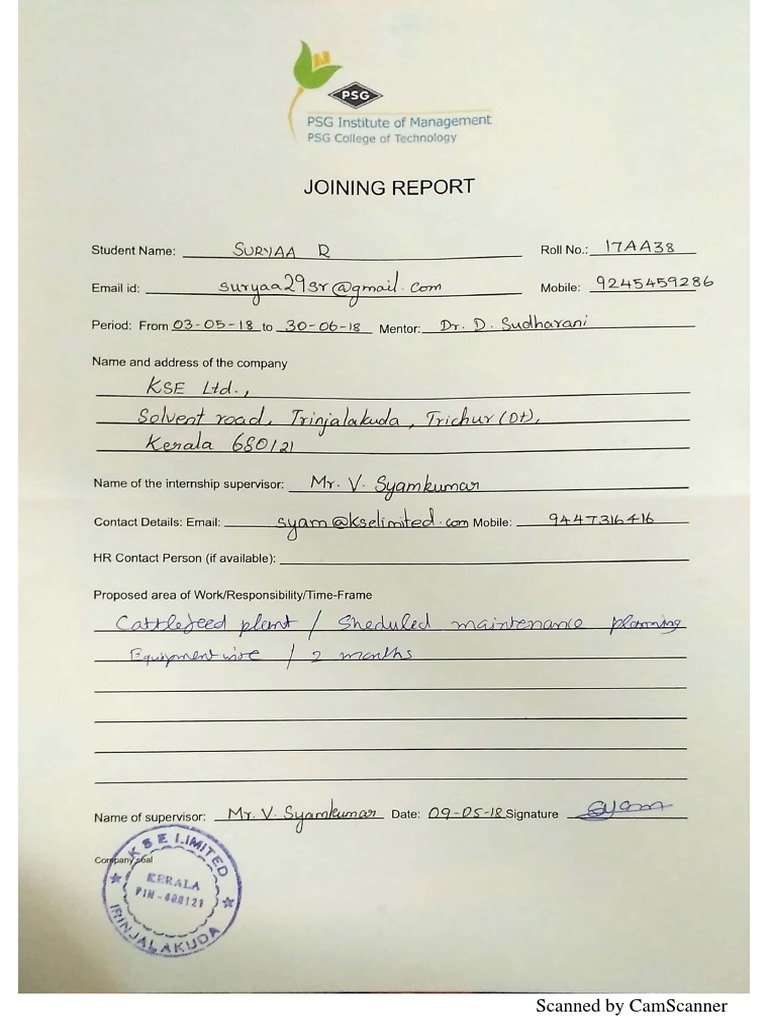 PSG
PSG Institute of Management
PSG College of Technology
JOINING REPORT
Student Name: SURYAA R Roll No.: 17AA38
Email id: suryaa29sr@gmail.com Mobile: 9245459286
Period: From 03-05-18 to 30-06-18 Mentor: Dr. D. Sudharani
Name and address of the company
KSE Ltd.,
Solvent road, Irinjalakuda, Trichur (Dt),
Kerala 680121
Name of the internship supervisor: Mr. V. Syamkumar
Contact Details: Email: syam@kselimited.com Mobile: 9447316416
HR Contact Person (if available):
Proposed area of Work/Responsibility/Time-Frame
Cattlefeed plant / Sheduled maintenance planning
Equipmentwise / 2 months
Name of supervisor: Mr. V. Syamkumar Date: 09-05-18 Signature Syam
Company seal
KSE LIMITED
KERALA
PIN - 680121
IRINJALAKUDA
Scanned by CamScanner